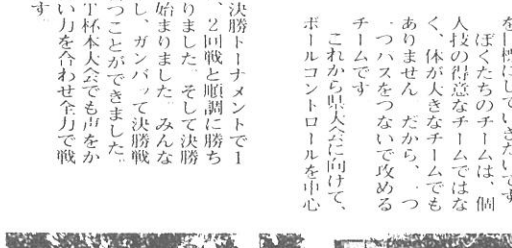 を目標にしていきたいです
ぼくたちのチームは、個
人技の得意なチームではな
く、体が大きなチームでも
ありません だから、一つ
一つパスをつないで攻める
チームです
これから県大会に向けて、
ボールコントロールを中心
決勝トーナメントで1
、2回戦と順調に勝ち
りました。そして決勝
始まりました。みんな
し、ガンバッて決勝戦
つことができました。
杯本大会でも声をか
い力を合わせ全力で戦
す